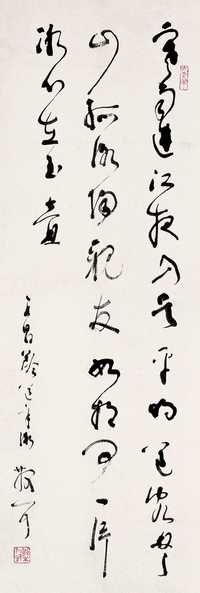 寒雨连江夜入吴平明送客楚
山孤洛阳亲友如相问一片
冰心在玉壶
王昌龄送辛渐 散耳